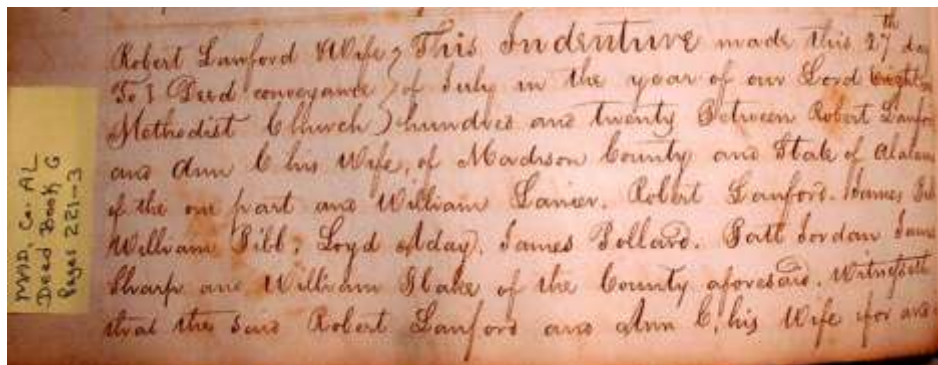 Robert Lanford & Wife } This Indenture made this 27th day
To } Deed conveyance } of July in the year of our Lord
Methodist Church } hundred and twenty Between Robert
and Ann C his Wife, of Madison County and State of
of the one part and William Lanier, Robert Lanford, James
William Bibb, Loyd Aday, James Pollard, Batt Jordan
Sharp and William Blake of the County aforesaid. Witnesseth
that the said Robert Lanford and Ann C, his Wife for and
MAD. Co. AL
Deed Book G
Pages 221-3